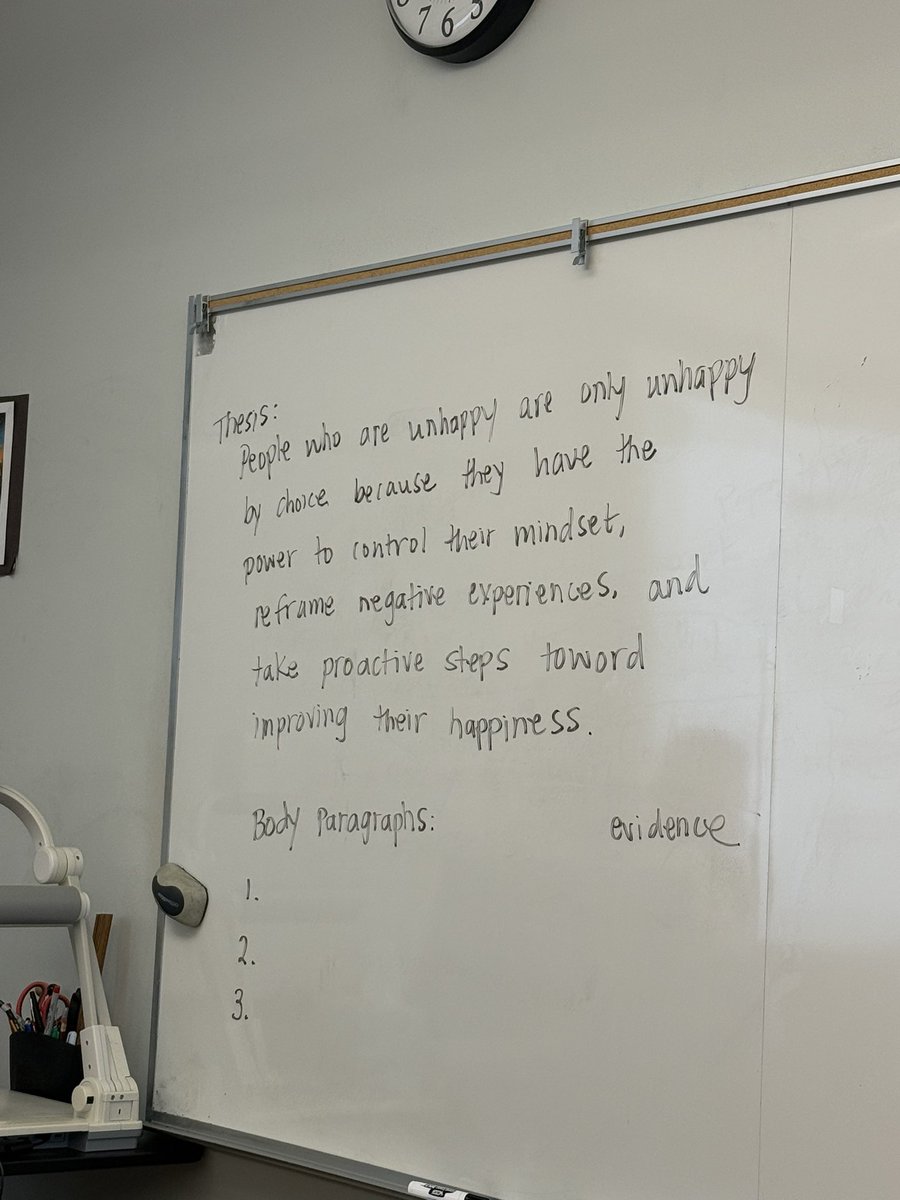 7 6 5
Thesis:
People who are unhappy are only unhappy
by choice because they have the
power to control their mindset,
reframe negative experiences, and
take proactive steps toword
improving their happiness.
Body Paragraphs: evidence
1.
2.
3.